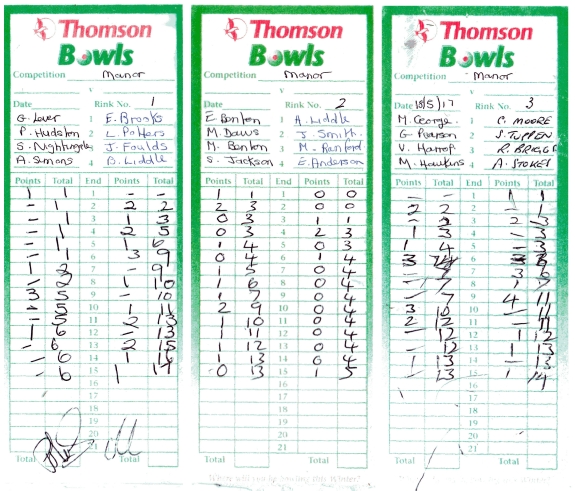 Thomson
Bowls
Competition Manor
v
Date Rink No. 1
G. Lover 1 E. Brooks
P. Hudston 2 L. Potters
S. Nightingale 3 J. Foulds
A. Simons 4 B. Liddle
Points Total End Points Total
1 1 1 - -
- 1 2 2 2
- 1 3 1 3
- 1 4 2 5
- 1 5 1 6
- 1 6 3 9
1 2 7 - 9
- 2 8 1 10
3 5 9 - 10
- 5 10 1 11
- 5 11 2 13
1 6 12 - 13
- 6 13 2 15
- 6 14 1 16
- 6 15 1 17
16
17
18
19
20
21
Total Total
Thomson
Bowls
Competition Manor
v
Date Rink No. 2
E Bonton 1 A. Liddle
M. Daws 2 J. Smith.
M. Bonton 3 M. Ranford
S. Jackson 4 E. Anderson
Points Total End Points Total
1 1 1 0 0
2 3 2 0 0
0 3 3 1 1
0 3 4 2 3
1 4 5 0 3
0 4 6 1 4
1 5 7 0 4
1 6 8 0 4
1 7 9 0 4
2 9 10 0 4
1 10 11 0 4
1 11 12 0 4
1 12 13 0 4
1 13 14 0 4
0 13 15 1 5
16
17
18
19
20
21
Total Total
Thomson
Bowls
Competition Manor
v
Date 18/5/17 Rink No. 3
M. George. 1 C. MOORE
G Pearson 2 S. TUPPEN
V. Harrop 3 R. BRIGGS
M. Hawkins 4 A. STOKES
Points Total End Points Total
- - 1 1 1
2 2 2 - 1
- 2 3 2 3
1 3 4 - 3
1 4 5 - 3
6
7
- 7 8 - 7
- 7 9 4 11
3 10 10 - 11
2 12 11 - 11
- 12 12 1 12
- 12 13 1 13
1 13 14 - 13
- 13 15 1 14
16
17
18
19
20
21
Total Total